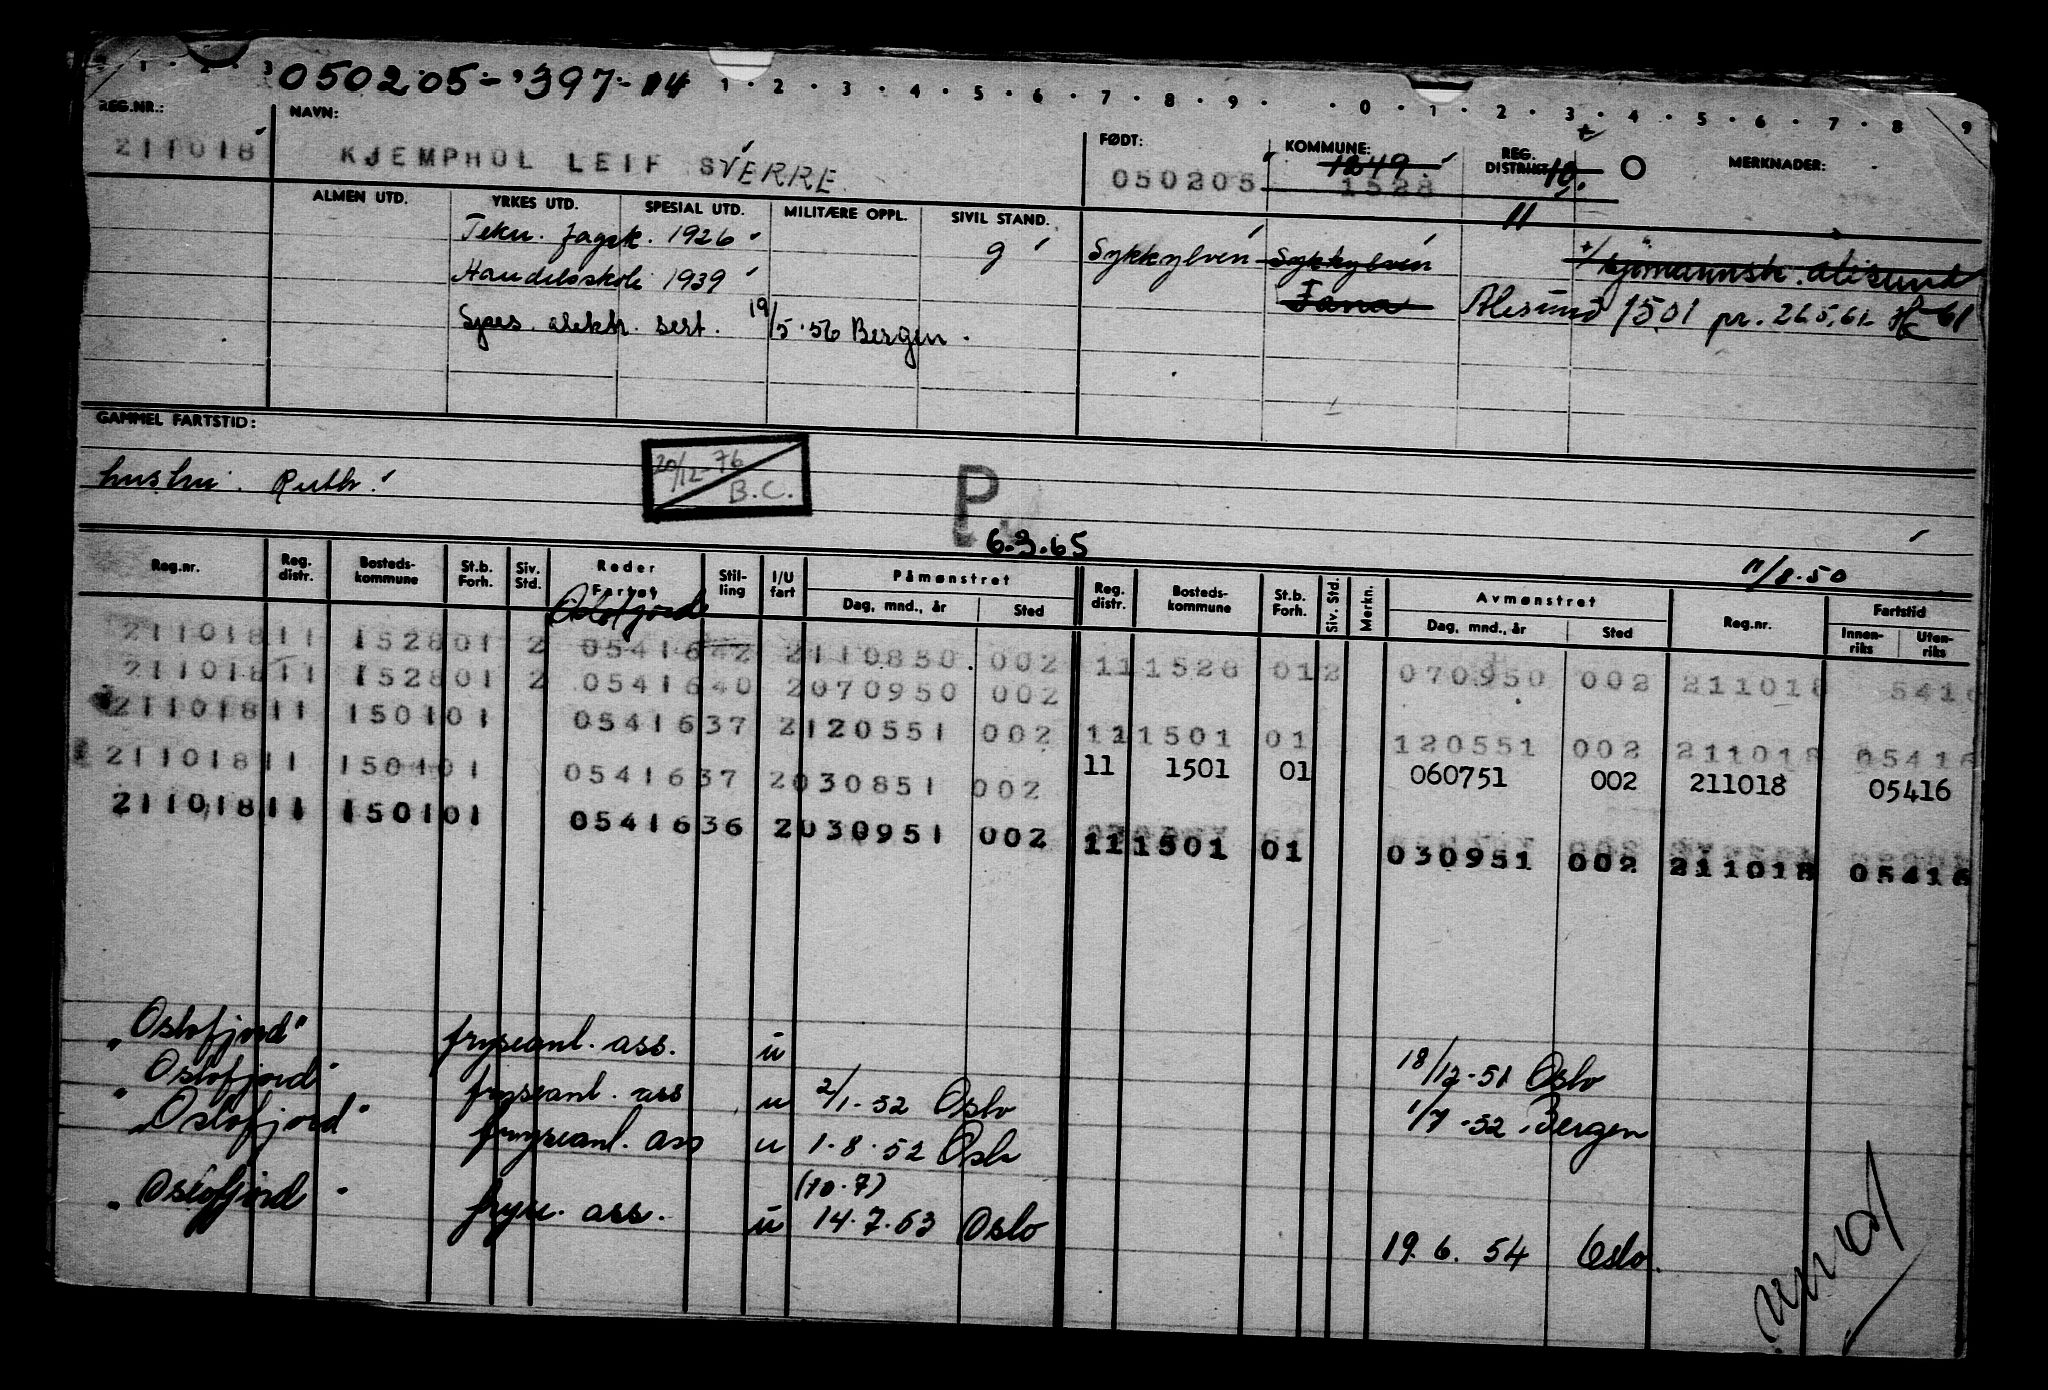 050205-397-14
1 · 2 · 3 · 1 · 2 · 3 · 4 · 5 · 6 · 7 · 8 · 9 · 0 · 1 · 2 · 3 · 4 · 5 · 6 · 7 · 8 · 9
REG.NR.: NAVN: FØDT: KOMMUNE: REG. DISTRIKT: MERKNADER:
211018 KJEMPHOL LEIF SVERRE 050205 1249 1528 10. O
ALMEN UTD. YRKES UTD. SPESIAL UTD. MILITÆRE OPPL. SIVIL STAND. 11
Tekn. fagsk. 1926 g Sykkylven Sykkylven
Handelsskole 1939 Fana Ålesund 1501 pr. 26.5.61 61
Spes. elektr. sert. 19/5-56 Bergen.
GAMMEL FARTSTID:
hustru. Ruth.
20/12-76
B.C.
P
6.3.65
11/8-50
Reg.nr. Reg. distr. Bosteds-kommune St.b. Forh. Siv. Std. Reder Fartøy Stil-ling I/U fart Påmønstret Reg. distr. Bosteds-kommune St.b. Forh. Siv. Std. Merkn. Avmønstret Reg.nr. Fartstid
Dag, mnd., år Sted Dag, mnd., år Sted Innen-riks Uten-riks
Oslofjord
211018 11 1528 01 2 05416 42 2 110850 002 11 1528 01 2 070950 002 211018 5416
211018 11 1528 01 2 05416 40 2 070950 002
211018 11 1501 01 05416 37 2 120551 002 11 1501 01 120551 002 211018 05416
211018 11 1501 01 05416 37 2 030851 002 11 1501 01 060751 002 211018 05416
211018 11 1501 01 05416 36 2 030951 002 11 1501 01 030951 002 211018 05416
"Oslofjord" fryseanl. ass. u 18/12-51 Oslo
"Oslofjord" fryseanl. ass u 2/1-52 Oslo 1/7-52 Bergen
"Oslofjord" fryseanl. ass u 1.8.52 Oslo
(10.7)
"Oslofjord" fryse. ass. u 14.7.53 Oslo 19.6.54 Oslo.